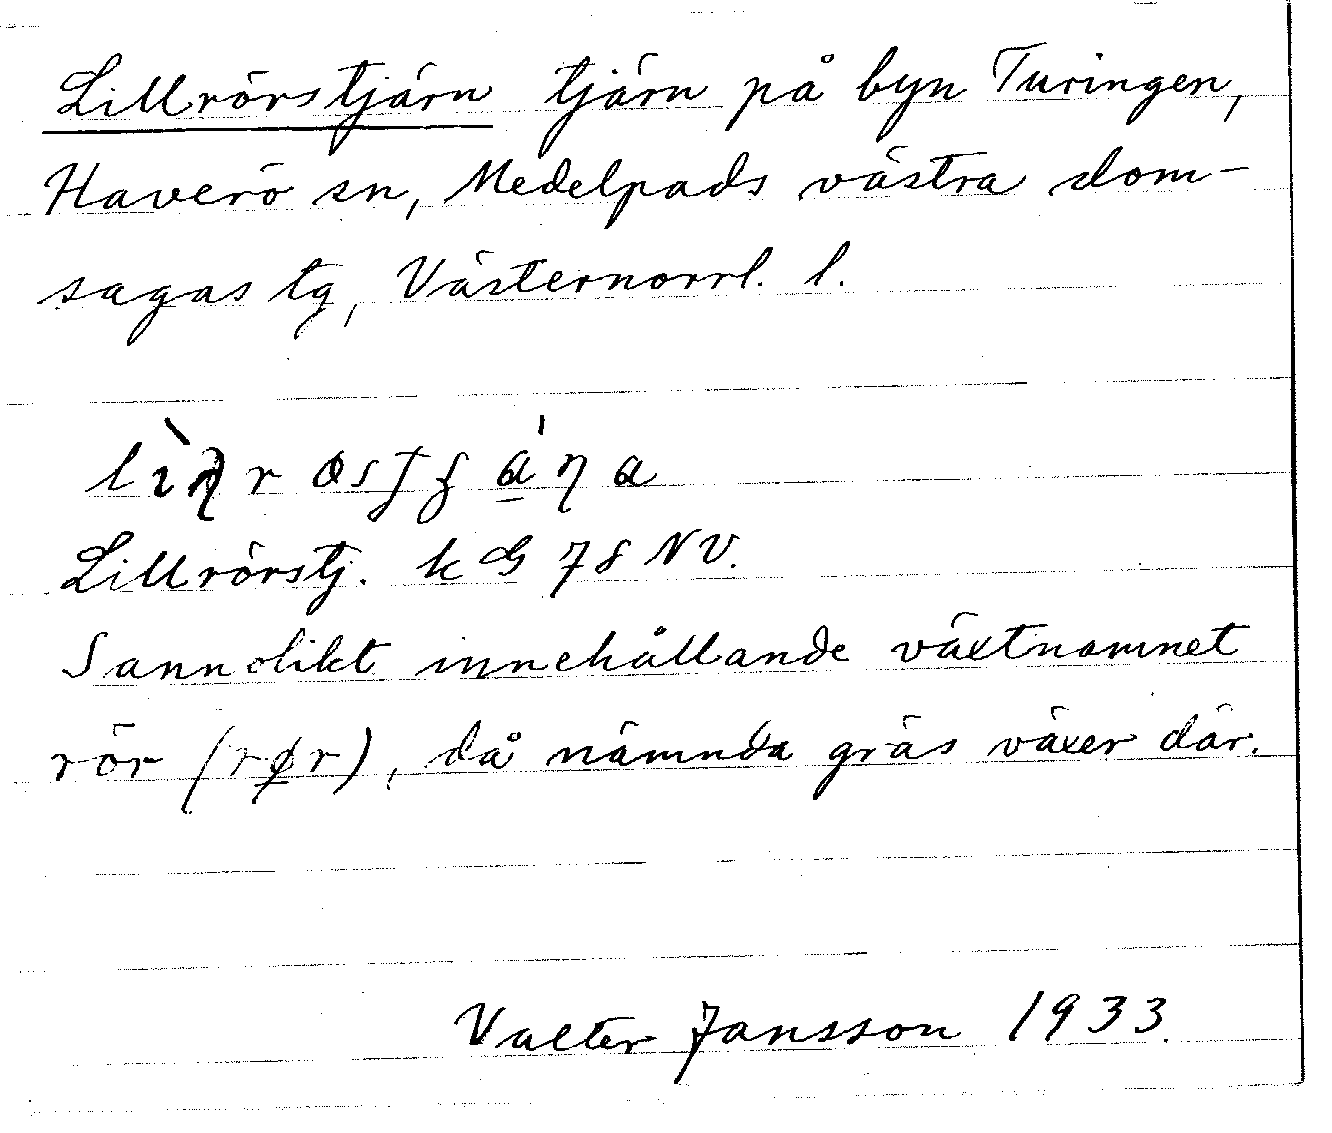 Lillrörstjärn tjärn på byn Turingen,
Haverö sn, Medelpads västra dom-
sagas tg, Västernorrl. l.
Lillrörstj. k G 78 NV.
Sannolikt innehållande växtnamnet
rör (rør), då nämnda gräs växer där.
Valter Jansson 1933.